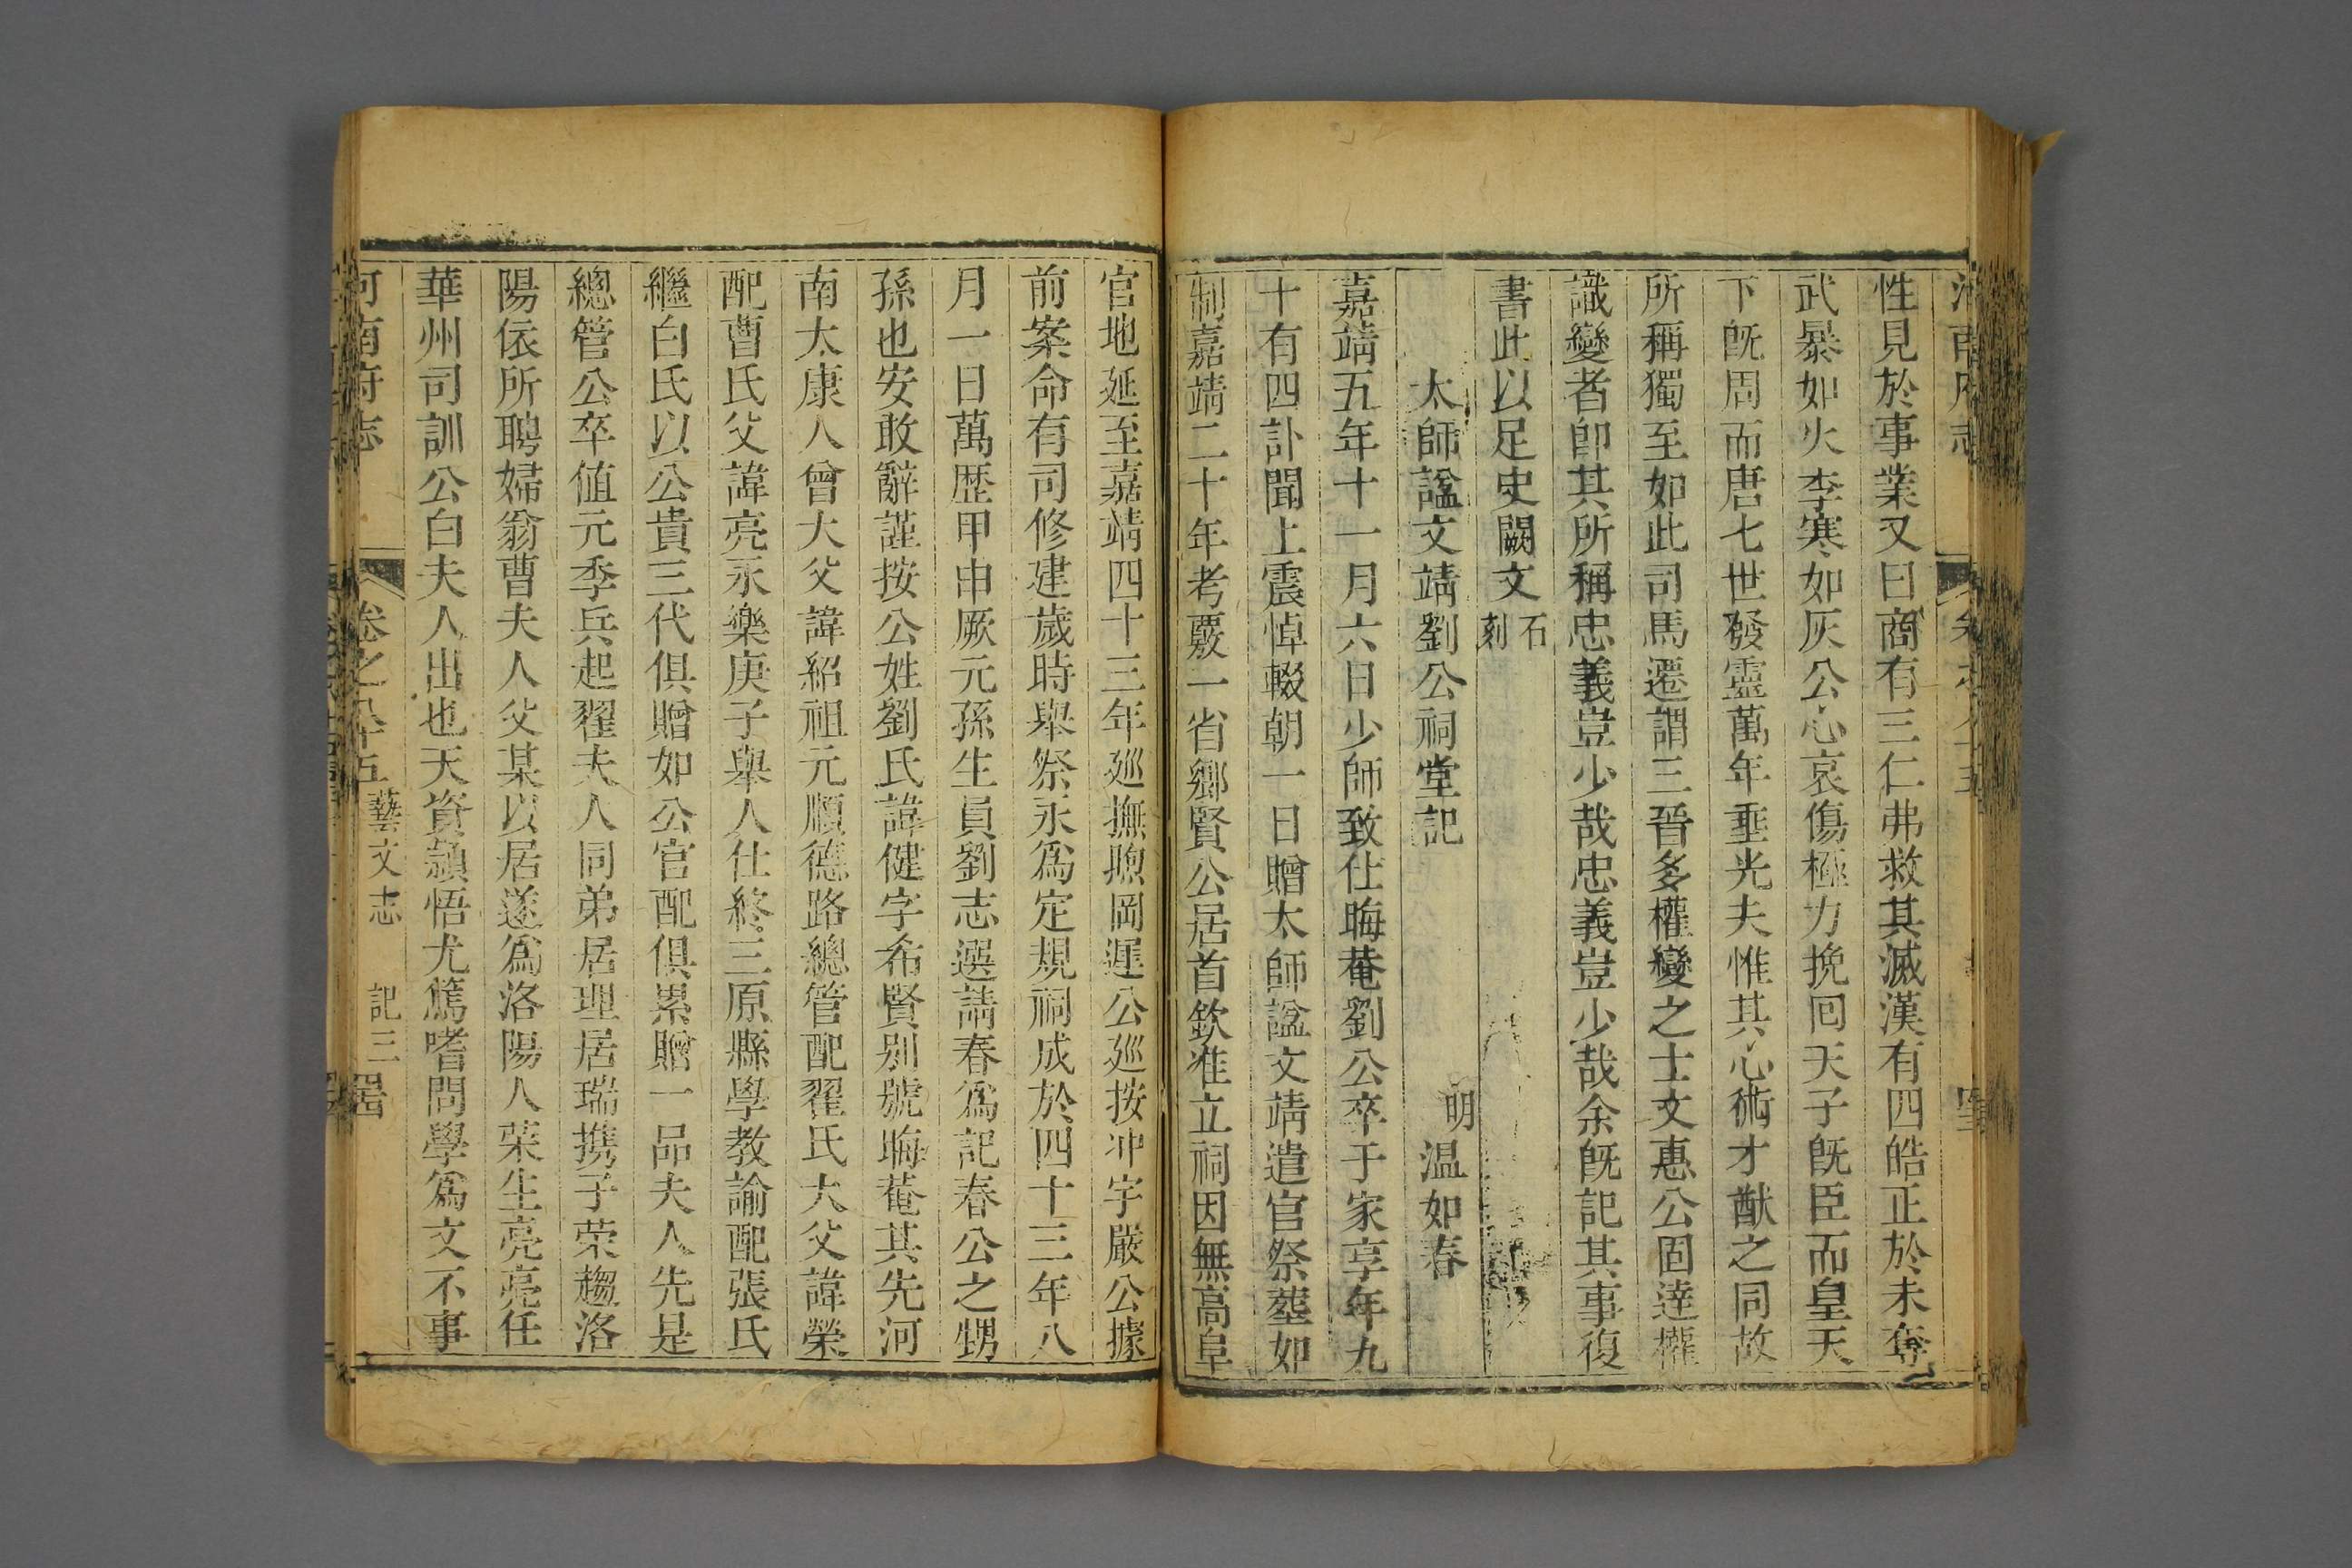 性見於事業又曰商有三仁弗救其滅漢有四皓正於未奪
武暴如火李寒如灰公心哀傷極力挽回天子旣臣而皇天
下旣周而唐七世發靈萬年垂光夫惟其心術才猷之同故
所稱獨至如此司馬遷謂三晉多權變之士文惠公固達權
識變者卽其所稱忠義豈少哉忠義豈少哉余旣記其事復
書此以足史闕文石刻
太師諡文靖劉公祠堂記 明溫如春
嘉靖五年十一月六日少師致仕晦菴劉公卒于家享年九
十有四訃聞上震悼輟朝一日贈太師諡文靖遣官祭塟如
制嘉靖二十年考覈一省鄉賢公居首欽准立祠因無高阜
官地延至嘉靖四十三年廵撫㷛岡遲公廵按冲宇嚴公據
前案命有司修建歲時舉祭永爲定規祠成於四十三年八
月一日萬歷甲申厥元孫生員劉志選請春爲記春公之甥
孫也安敢辭謹按公姓劉氏諱健字希賢别號晦菴其先河
南太康人曾大父諱紹祖元順德路總管配翟氏大父諱榮
配曹氏父諱亮永樂庚子舉人仕終三原縣學教諭配張氏
繼白氏以公貴三代俱贈如公官配俱累贈一品夫人先是
總管公卒値元季兵起翟夫人同弟居理居瑞携子荣趨洛
陽依所聘婦翁曹夫人父某以居遂爲洛陽人荣生亮亮任
華州司訓公白夫人出也天資頴悟尤篤嗜問學爲文不事
河南府志 卷之八十五 藝文志 記三